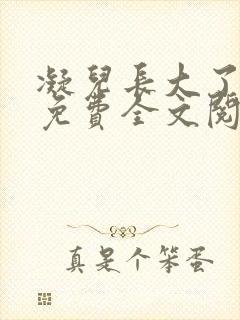 凝兒長大了
免費全文閱
真是个笨蛋